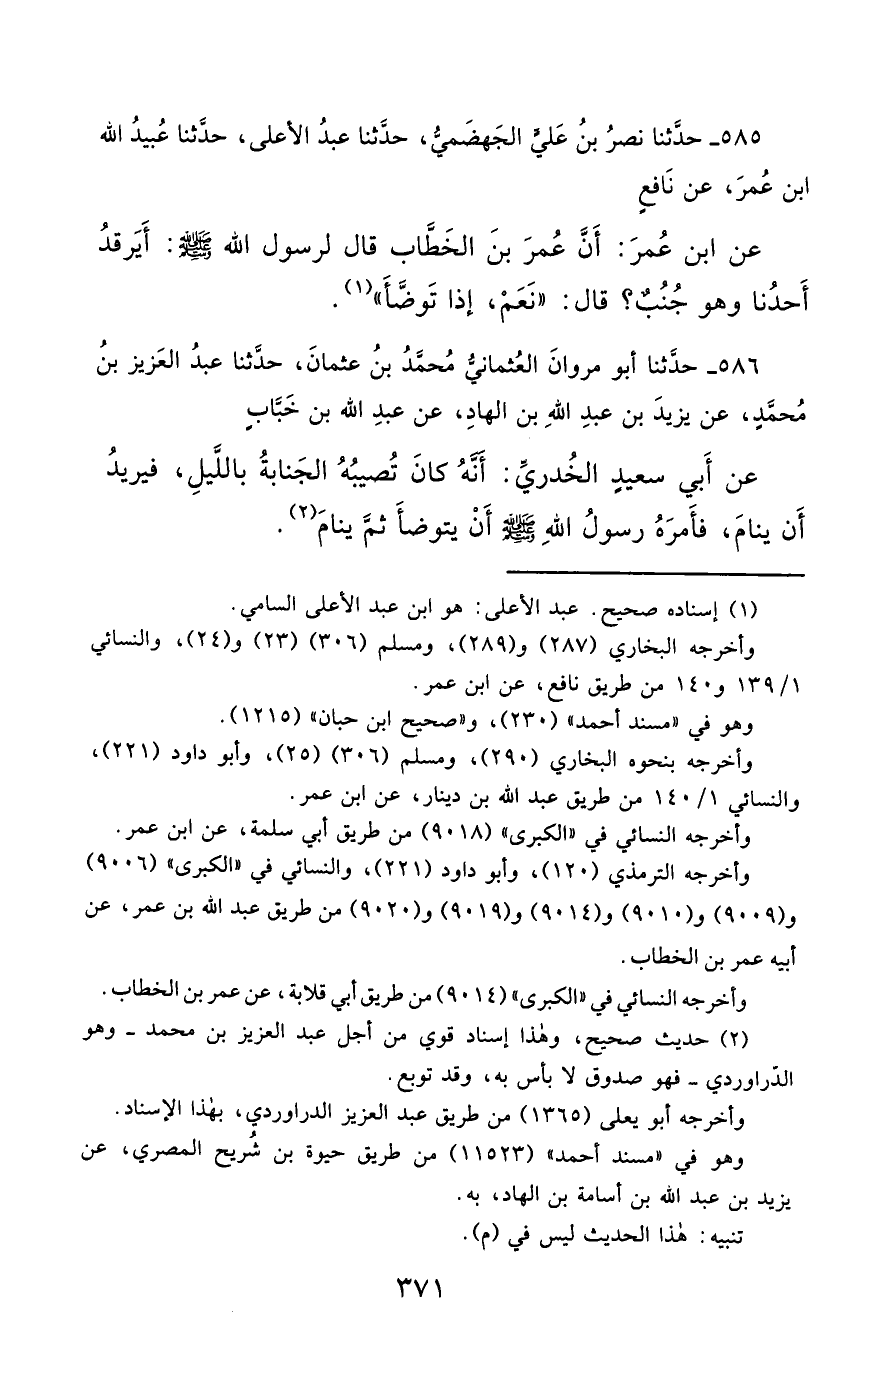 ٥٨٥ـ حدَّثنا نصرُ بنُ عَليٍّ الجَهضَميُّ، حدَّثنا عبدُ الأعلى، حدَّثنا عُبيدُ الله
ابن عُمرَ، عن نَافعٍ
عن ابن عُمرَ: أَنَّ عُمرَ بنَ الخَطَّاب قال لرسول الله ﷺ: أَيَرقدُ
أَحدُنا وهو جُنُبٌ؟ قال: «نَعَمْ، إذا تَوضَّأَ»(١).
٥٨٦ـ حدَّثنا أبو مروانَ العُثمانيُّ مُحمَّدُ بنُ عثمانَ، حدَّثنا عبدُ العَزيز بنُ
مُحمَّدٍ، عن يزيدَ بن عبدِ اللهِ بن الهادِ، عن عبدِ الله بن خَبَّابٍ
عن أَبي سعيدٍ الخُدريِّ: أَنَّهُ كانَ تُصيبُهُ الجَنابةُ باللَّيلِ، فيريدُ
أَن ينامَ، فأَمرَهُ رسولُ اللهِ ﷺ أَنْ يتوضأَ ثمَّ ينامَ(٢).
(١) إسناده صحيح. عبد الأعلى: هو ابن عبد الأعلى السامي.
وأخرجه البخاري (٢٨٧) و(٢٨٩)، ومسلم (٣٠٦) (٢٣) و(٢٤)، والنسائي
١/ ١٣٩ و١٤٠ من طريق نافع، عن ابن عمر.
وهو في «مسند أحمد» (٢٣٠)، و«صحيح ابن حبان» (١٢١٥).
وأخرجه بنحوه البخاري (٢٩٠)، ومسلم (٣٠٦) (٢٥)، وأبو داود (٢٢١)،
والنسائي ١/ ١٤٠ من طريق عبد الله بن دينار، عن ابن عمر.
وأخرجه النسائي في «الكبرى» (٩٠١٨) من طريق أبي سلمة، عن ابن عمر.
وأخرجه الترمذي (١٢٠)، وأبو داود (٢٢١)، والنسائي في «الكبرى» (٩٠٠٦)
و(٩٠٠٩) و(٩٠١٠) و(٩٠١٤) و(٩٠١٩) و(٩٠٢٠) من طريق عبد الله بن عمر، عن
أبيه عمر بن الخطاب.
وأخرجه النسائي في «الكبرى» (٩٠١٤) من طريق أبي قلابة، عن عمر بن الخطاب.
(٢) حديث صحيح، وهٰذا إسناد قوي من أجل عبد العزيز بن محمد ـ وهو
الدّراوردي ـ فهو صدوق لا بأس به، وقد توبع.
وأخرجه أبو يعلى (١٣٦٥) من طريق عبد العزيز الدراوردي، بهٰذا الإسناد.
وهو في «مسند أحمد» (١١٥٢٣) من طريق حيوة بن شُريح المصري، عن
يزيد بن عبد الله بن أسامة بن الهاد، به.
تنبيه: هٰذا الحديث ليس في (م).
٣٧١